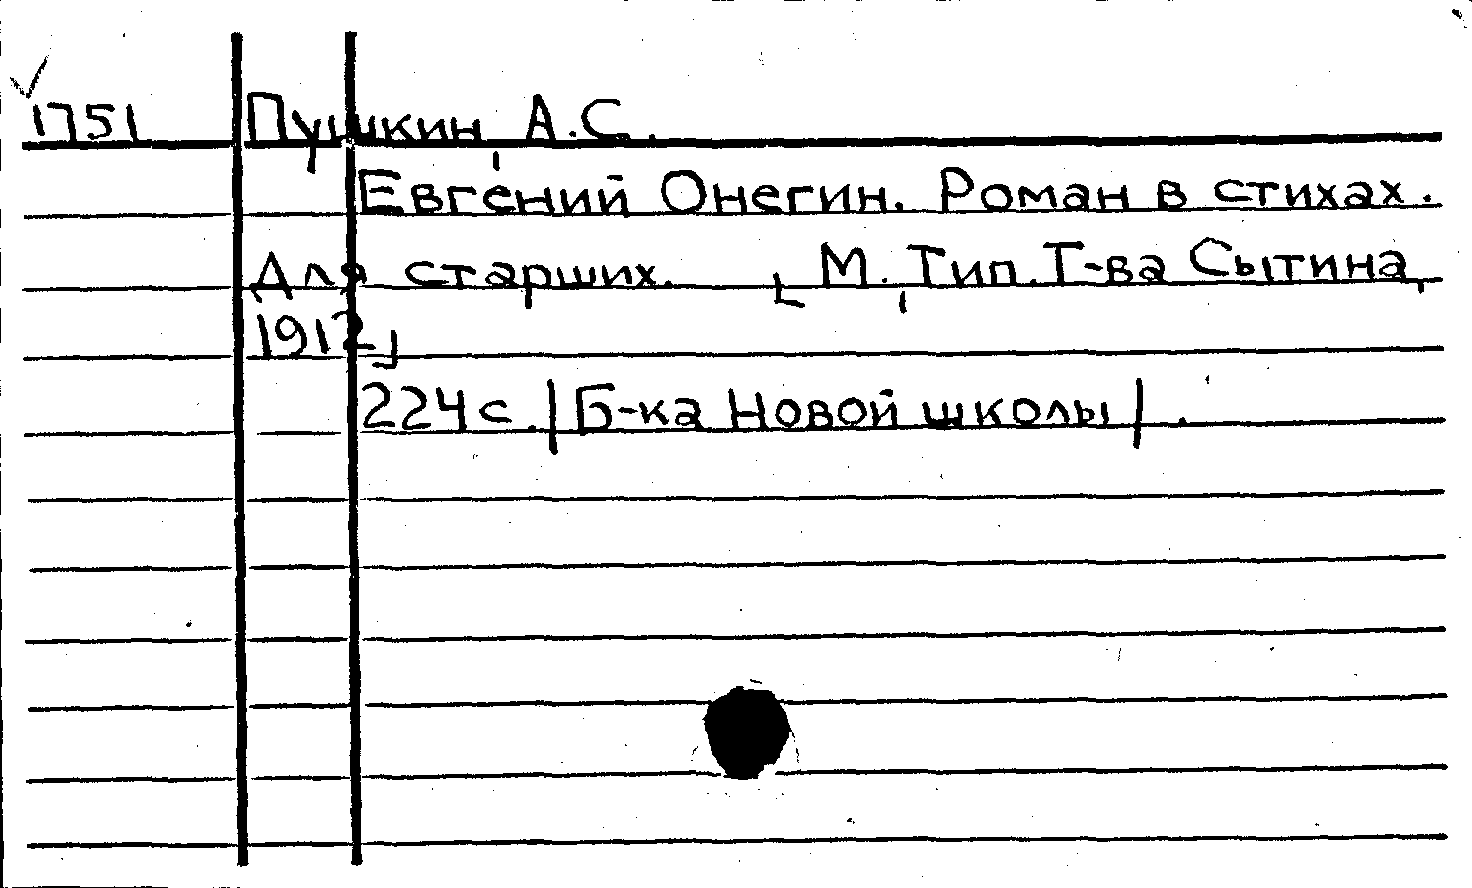 1751 Пушкин, А.С.
Евгений Онегин. Роман в стихах.
Для старших. [М., Тип. Т-ва Сытина,
1912]
224 с. | Б-ка Новой школы | .